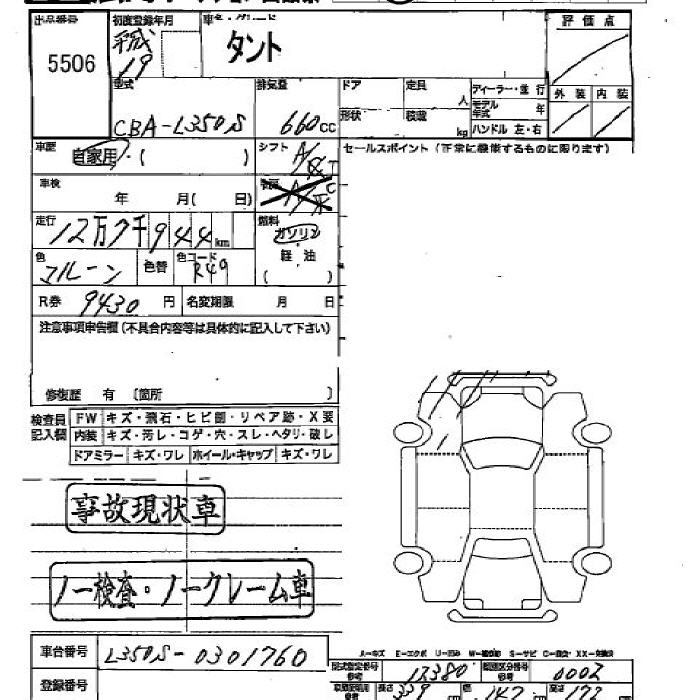 出品番号 初度登録年月 車名・グレード 評価点
5506 平成19 タント
型式 排気量 ドア 定員 人 ディーラー・並行 外装 内装
CBA-L350S 660cc 形状 積載 kg モデル年式 年
ハンドル 左・右
車歴 自家用・( ) シフト A/ セールスポイント(正常に機能するものに限ります)
車検 年 月( 日)
走行 12万7千944km 燃料 ガソリン
軽油
( )
色 マルーン 色替 色コード R49
R券 9430円 名変期限 月 日
注意事項申告欄(不具合内容等は具体的に記入して下さい)
修復歴 有 〔箇所 〕
検査員記入欄 FW キズ・飛石・ヒビ割・リペア跡・X要
内装 キズ・汚レ・コゲ・穴・スレ・ヘタリ・破レ
ドアミラー キズ・ワレ ホイール・キャップ キズ・ワレ
事故現状車
ノー検査・ノークレーム車
車台番号 L350S-0301760
登録番号
A-キズ E-エクボ U-凹み W-補修跡 S-サビ C-腐食 XX-交換済
型式指定番号 参考 12380 類別区分番号 参考 0002
長さ 339 cm 幅 147 cm 高さ 172 cm